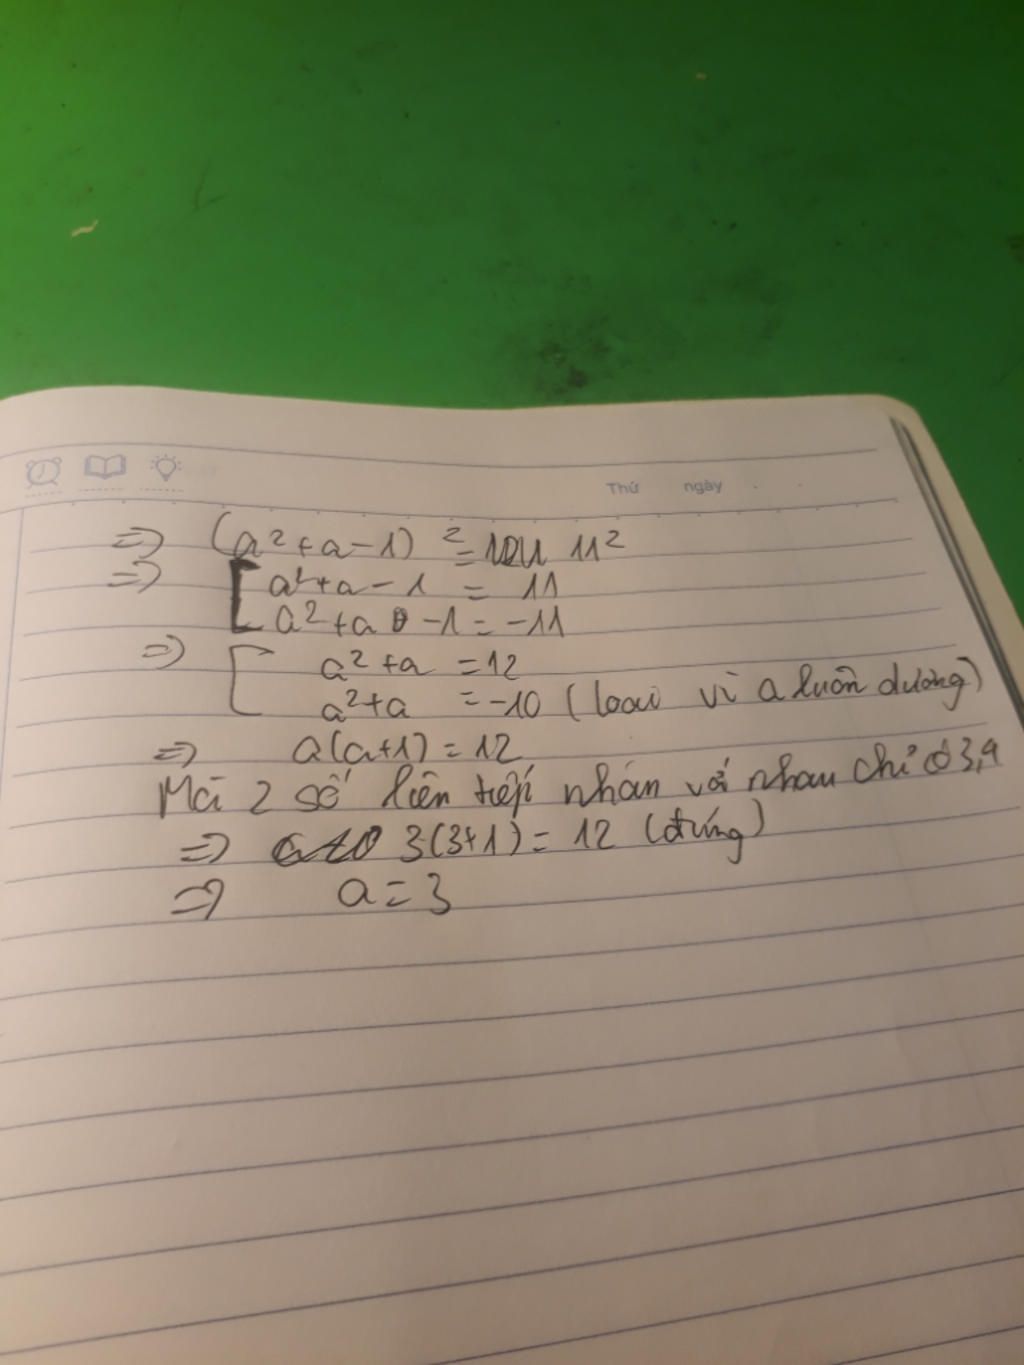 Thứ ngày
=> (a²+a-1)² = 11²
=> [ a²+a-1 = 11
a²+a -1 = -11
=> [ a²+a = 12
a²+a = -10 (loại vì a luôn dương)
=> a(a+1) = 12
Mà 2 số liên tiếp nhân với nhau chỉ có 3,4
=> 3(3+1) = 12 (đúng)
=> a = 3